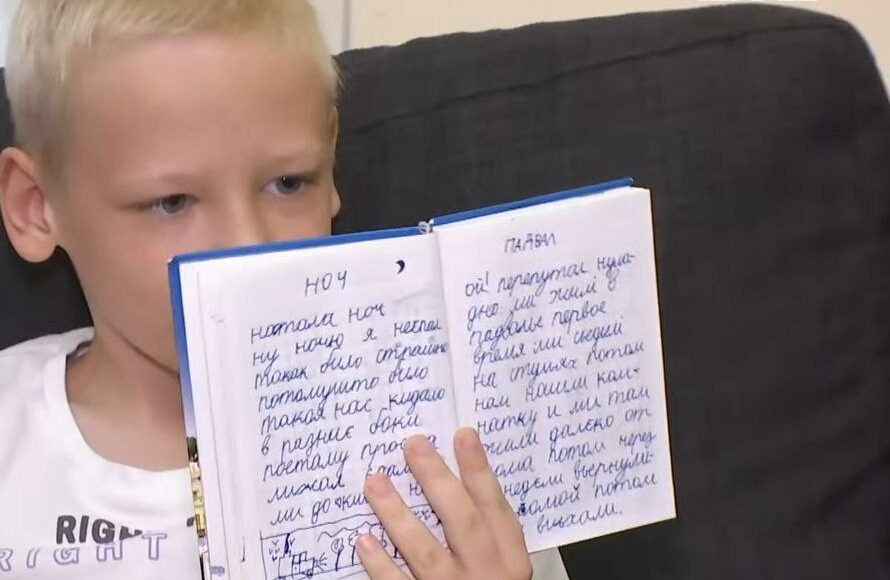 НОЧ
натала ноч
ну ночю я неспал
такак било страшно
потамушто било
такоя нас кидало
в разние боки
поетаму прос а
лижал
ми дожи
ПАДВАЛ
ой! перепутал нула-
дно ми жили в
падвале первое
время ми сидели
на стулях потом
нам нашли ком-
натку и ми там
жили далеко от
ома потом через
недели вернули-
домой потом
виехали.
RIGHT
RIGHT